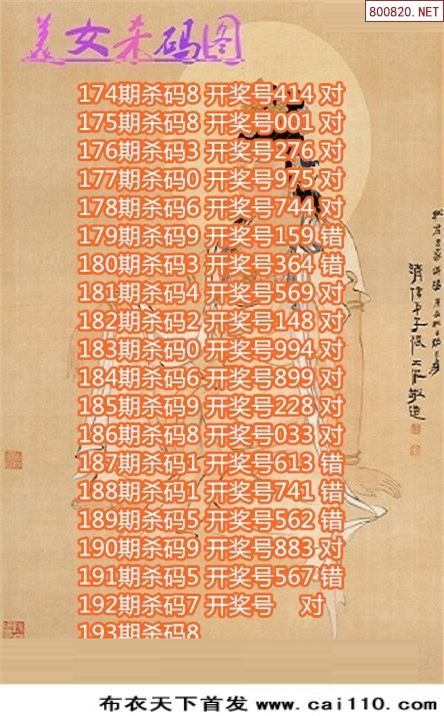 800820.NET
美女杀码图
174期杀码8 开奖号414 对
175期杀码8 开奖号001 对
176期杀码3 开奖号276 对
177期杀码0 开奖号975 对
178期杀码6 开奖号744 对
179期杀码9 开奖号159 错
180期杀码3 开奖号364 错
181期杀码4 开奖号569 对
182期杀码2 开奖号148 对
183期杀码0 开奖号994 对
184期杀码6 开奖号899 对
185期杀码9 开奖号228 对
186期杀码8 开奖号033 对
187期杀码1 开奖号613 错
188期杀码1 开奖号741 错
189期杀码5 开奖号562 错
190期杀码9 开奖号883 对
191期杀码5 开奖号567 错
192期杀码7 开奖号 对
193期杀码8
布衣天下首发 www.cai110.com